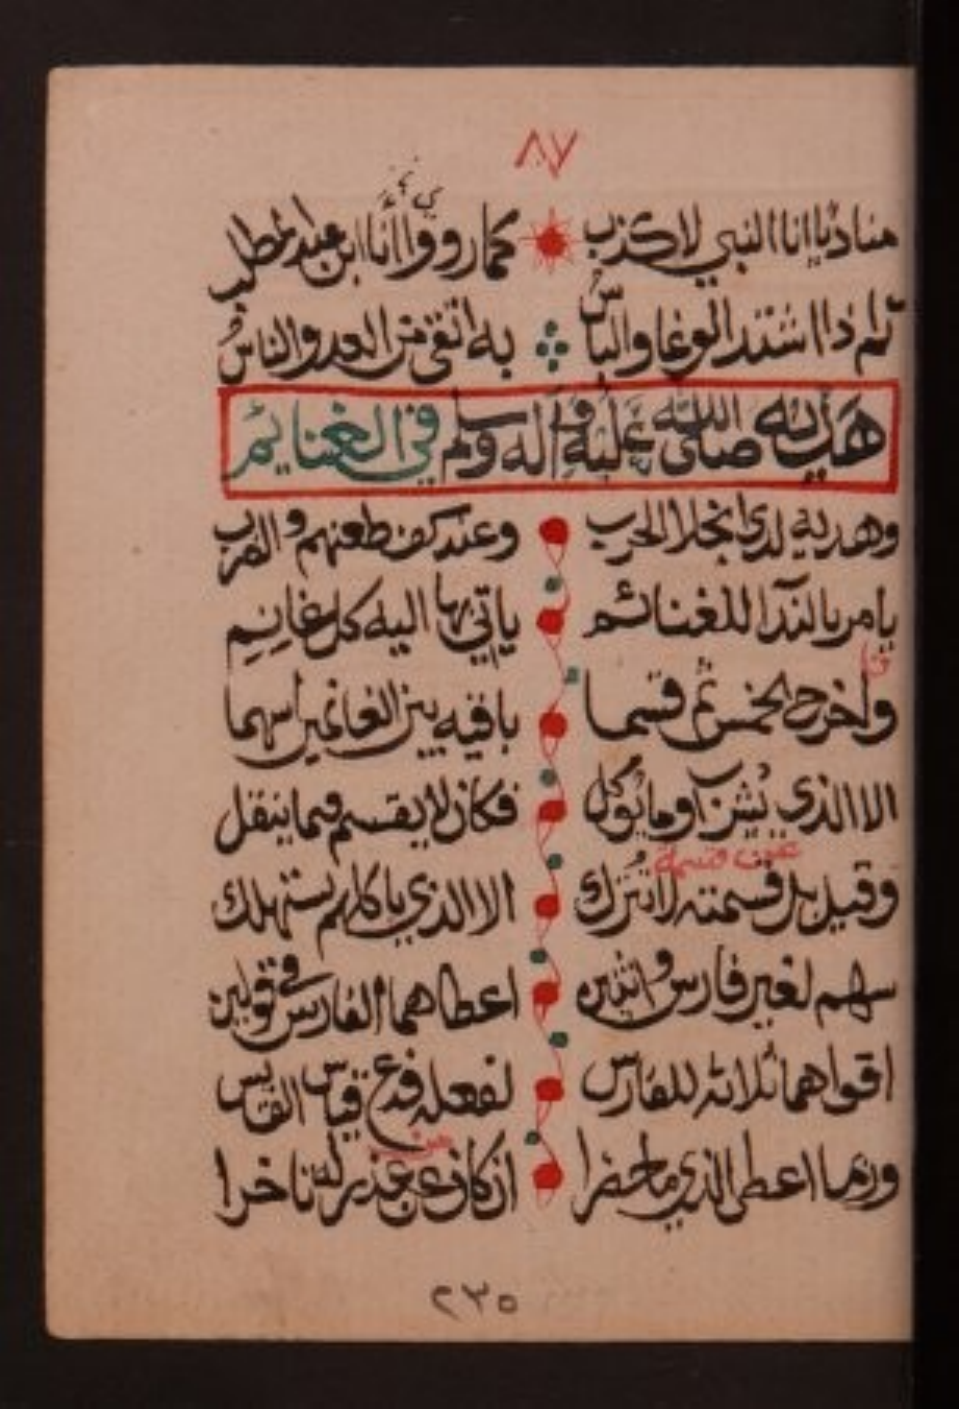 ٨٧
مناديا انا النبي لا كذب كما رووا انا ابن عبد المطلب
ثم اذا اشتد الوغا والباس به اتقى من العدو الناس
هديه صلى الله عليه وآله وسلم في الغنايم
وهديه لدى انجلا الحرب وعند كف طعنهم والضرب
يامر بالندا للغنائم ياتي بها اليه كل غانم
واخرج الخمس ثم قسما باقيه بين الغانمين اسهما
الا الذي يشرب او ما يوكل فكان لا يقسم فيما ينقل
وقيل بل قسمته لا تترك الا الذي ياكلهم يستهلك
عين قسمة
سهم لغير فارس واثنين اعطاهما الفارس في قولين
اقواهما ثلاثة للفارس لفعله فدع قياس القايس
وربما اعطى الذي ما حضرا ان كان عن عذر له تاخرا
٢٣٥